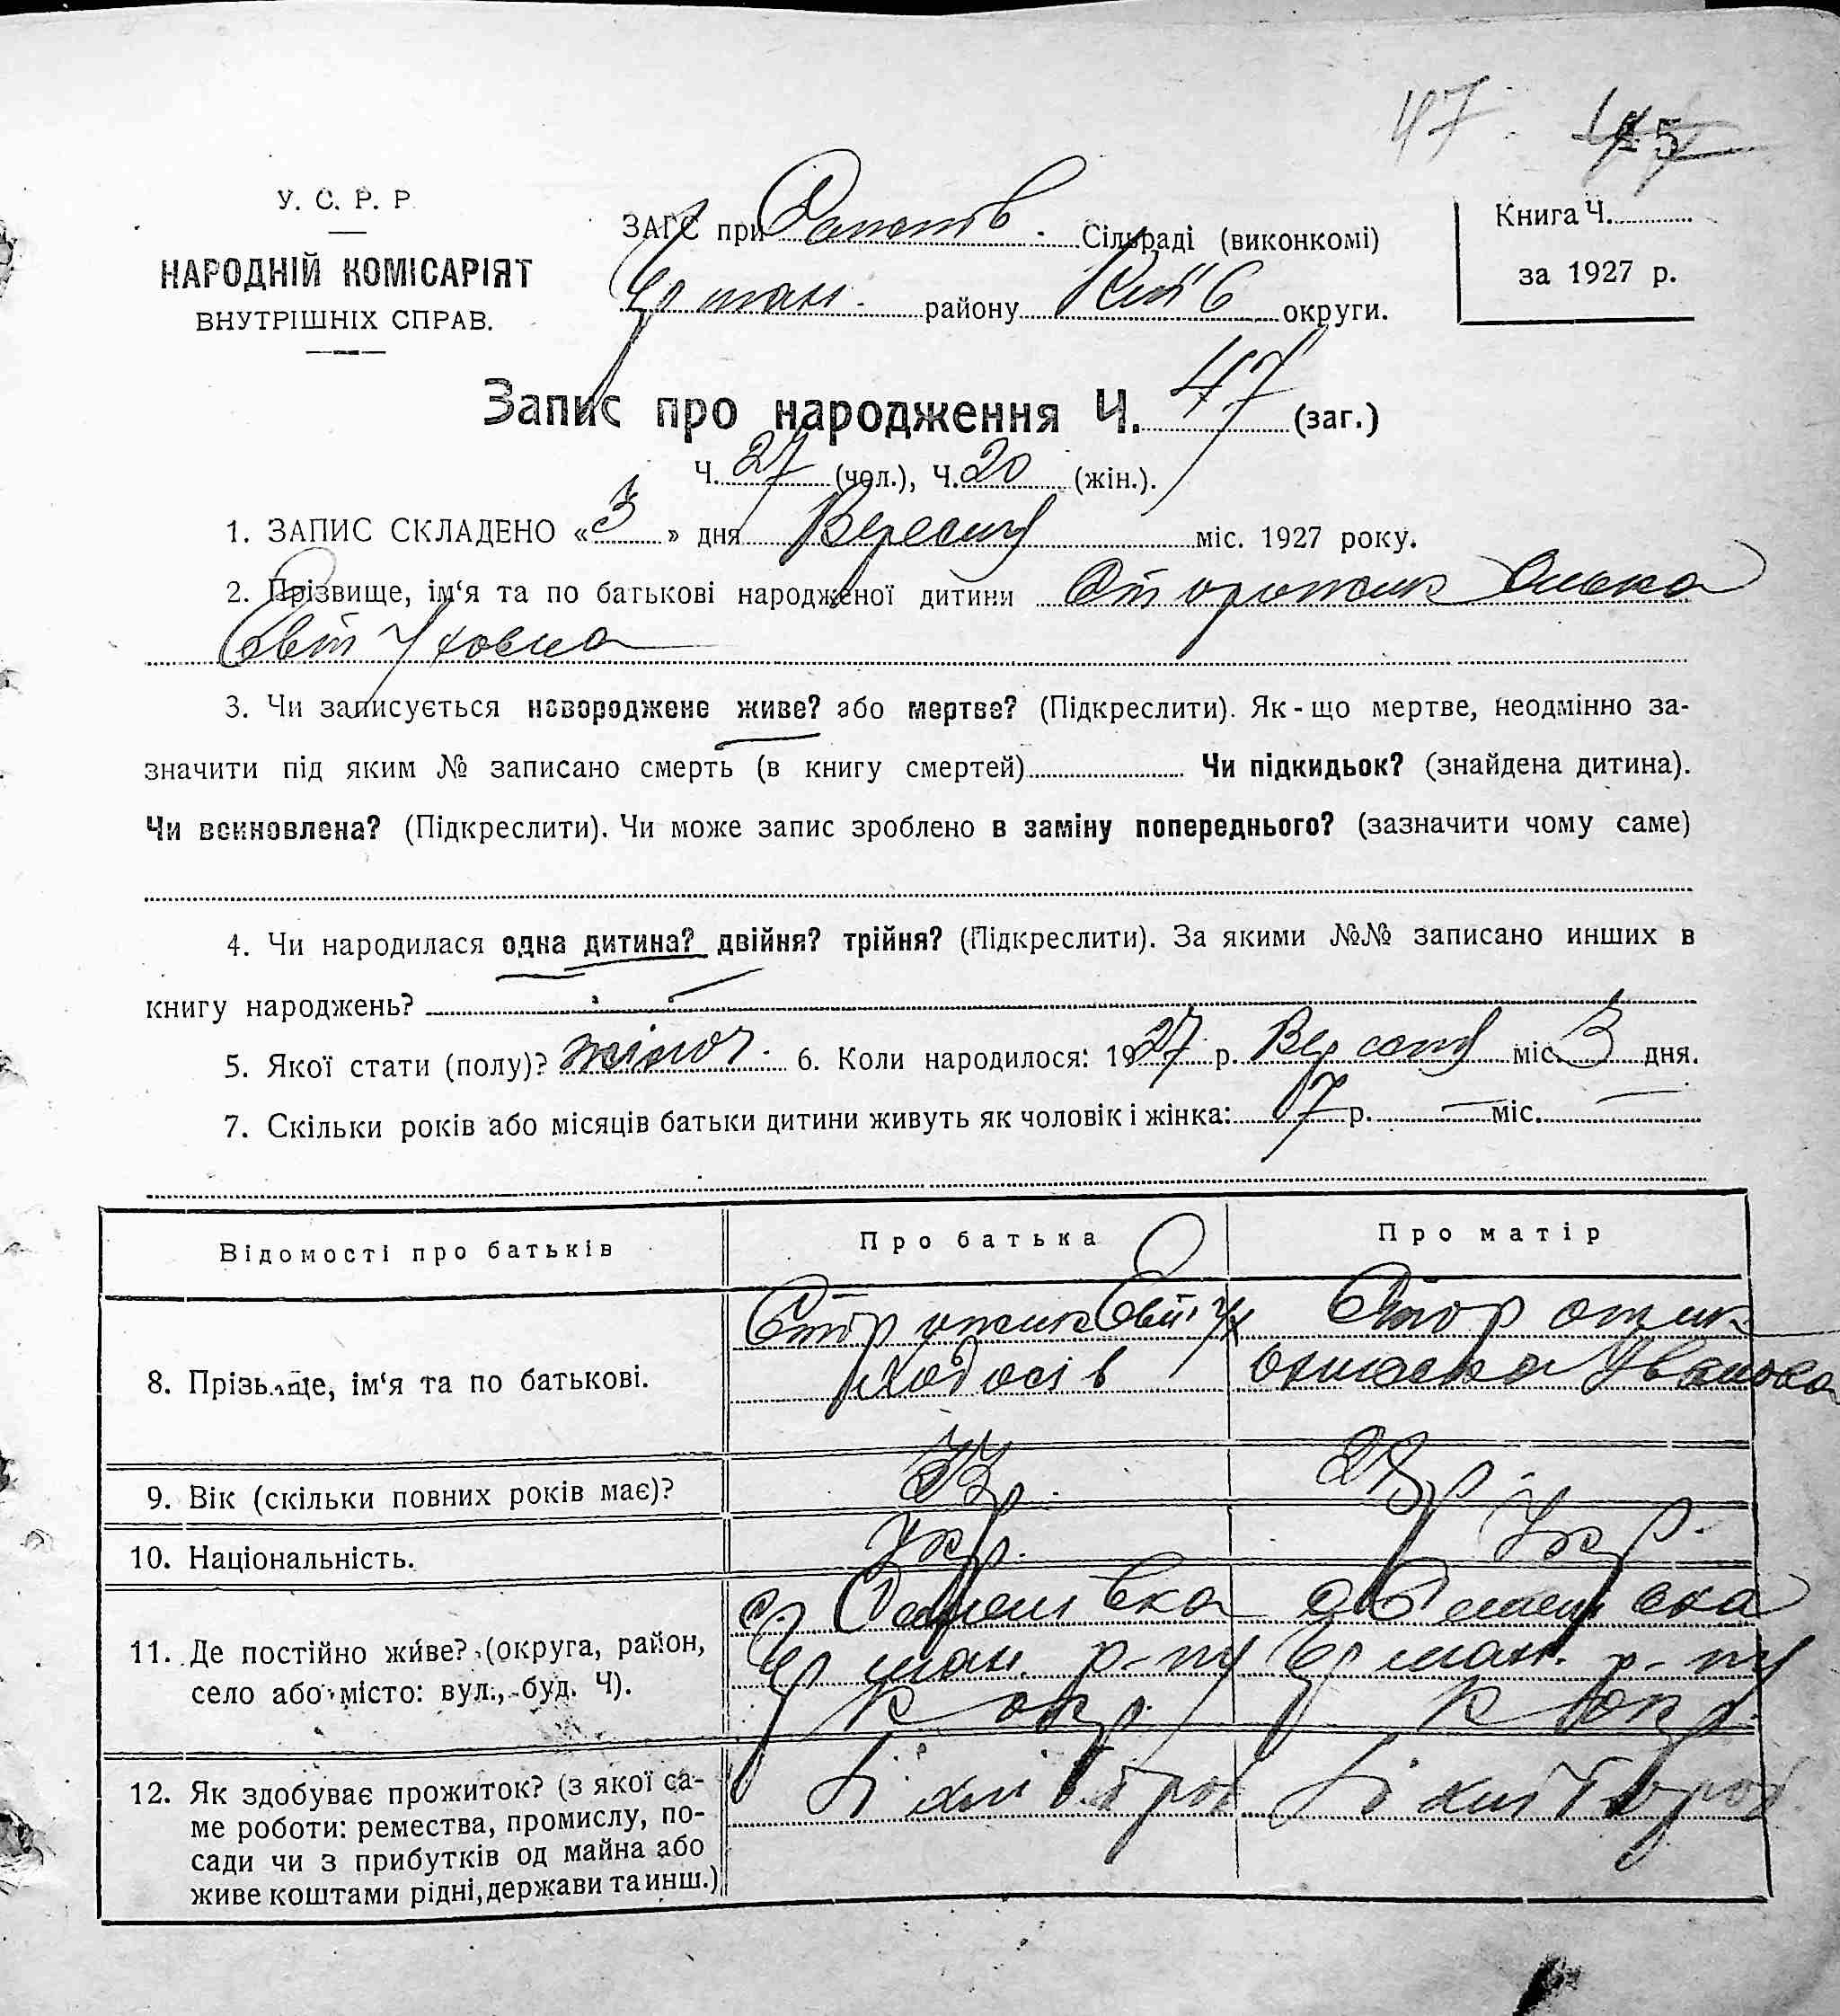 47
У. С. Р. Р.
НАРОДНІЙ КОМІСАРІЯТ
ВНУТРІШНІХ СПРАВ.
ЗАГС при Сільраді (виконкомі)
району Київ округи.
Книга Ч.
за 1927 р.
Запис про народження Ч. 47 (заг.)
Ч. 27 (чол.), Ч. 20 (жін.).
1. ЗАПИС СКЛАДЕНО « 3 » дня Вересня міс. 1927 року.
2. Прізвище, ім‘я та по батькові народженої дитини Сторожик
Євтуховна
3. Чи записується новороджене живе? або мертве? (Підкреслити). Як-що мертве, неодмінно за-
значити під яким № записано смерть (в книгу смертей) Чи підкидьок? (знайдена дитина).
Чи всиновлена? (Підкреслити). Чи може запис зроблено в заміну попереднього? (зазначити чому саме)
4. Чи народилася одна дитина? двійня? трійня? (Підкреслити). За якими №№ записано инших в
книгу народжень?
5. Якої стати (полу)? жіноч. 6. Коли народилося: 1927 р. Вересня міс. 3 дня.
7. Скільки років або місяців батьки дитини живуть як чоловік і жінка: 7 р. — міс. —
Відомості про батьків Про батька Про матір
8. Прізвище, ім‘я та по батькові.
Сторожик Євтух Сторожик
Федосів Івановна
9. Вік (скільки повних років має)? 33 р. 28 р.
10. Національність. Укр. Укр.
11. Де постійно живе? (округа, район,
село або місто: вул., буд. Ч).
р-ну р-ну
К окр. К окр.
12. Як здобуває прожиток? (з якої са-
ме роботи: ремества, промислу, по-
сади чи з прибутків од майна або
живе коштами рідні, держави та инш.)